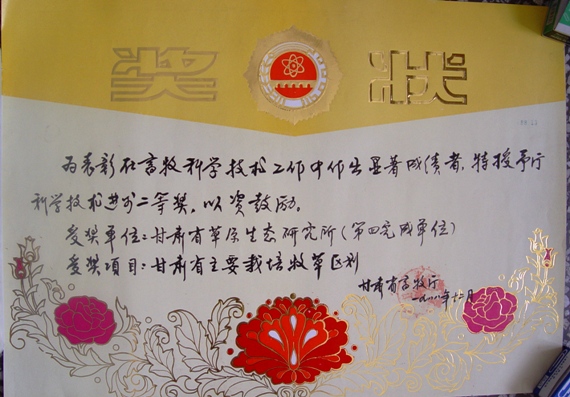 奖 状
为表彰在畜牧科学技术工作中作出显著成绩者，特授予厅
科学技术进步二等奖，以资鼓励。
受奖单位：甘肃省草原生态研究所（第四完成单位）
受奖项目：甘肃省主要栽培牧草区划
甘肃省畜牧厅